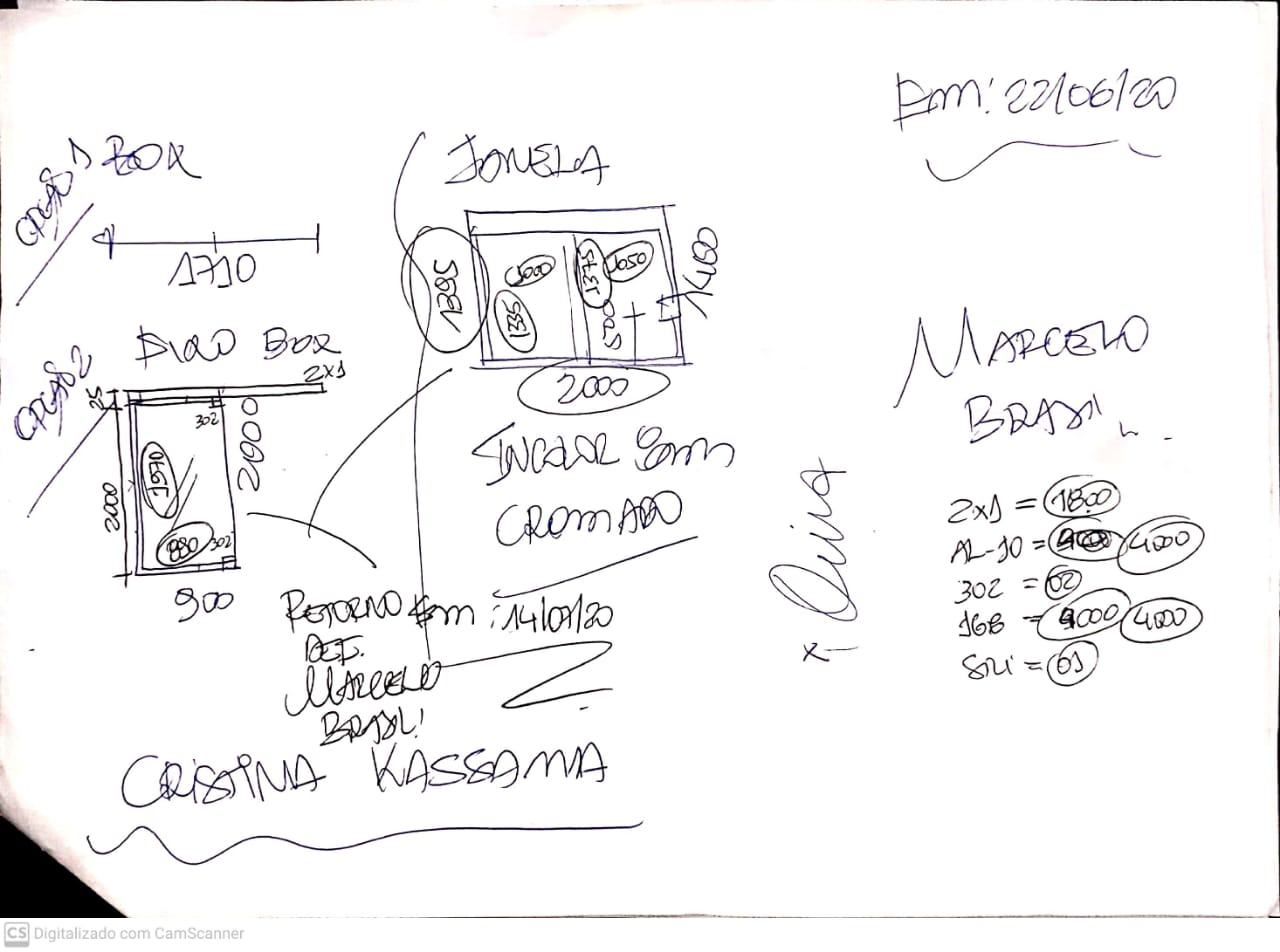 Em: 22/06/20
OPÇAS 1
BOX
1710
OPÇAS 2
BOX
2x1
25
302
2000
1970
2000
880
302
900
JANELA
1395
1000
1335
1375
1050
1400
2000
INCOLOR 8mm
CROMADO
RETORNO Em: 14/07/20
DEF.
MARCELO
BRASIL!
CRISTINA KASSAMA
MARCELO
BRASIL
2x1 = 1800
AL-10 = 4000
302 = 02
168 = 4000 4000
Sili = 01
CS Digitalizado com CamScanner